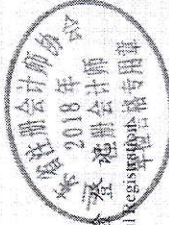 省注册会计师协会
2018年
注册会计师
合格专用章
登记
l Registration